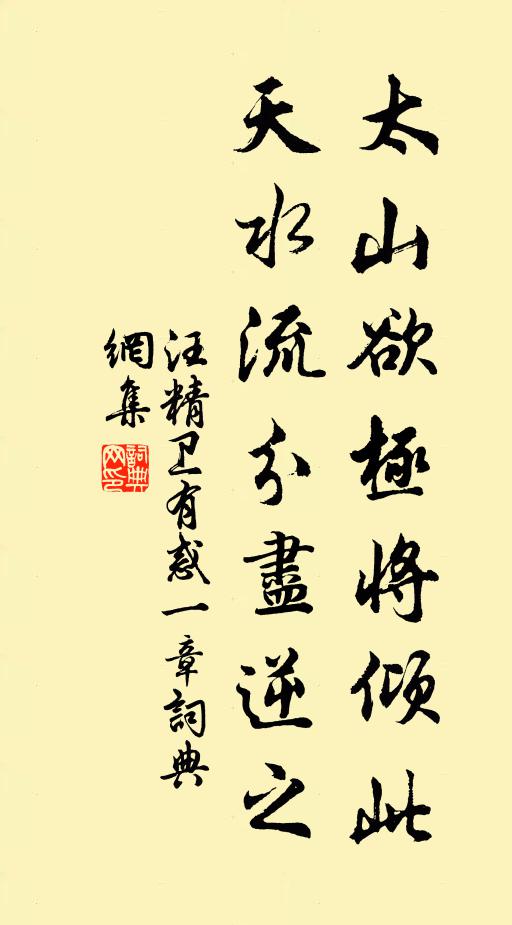 太山欲極將傾此
天水流分盡逆之
汪精卫有感一章詞典
網集
詞典網印